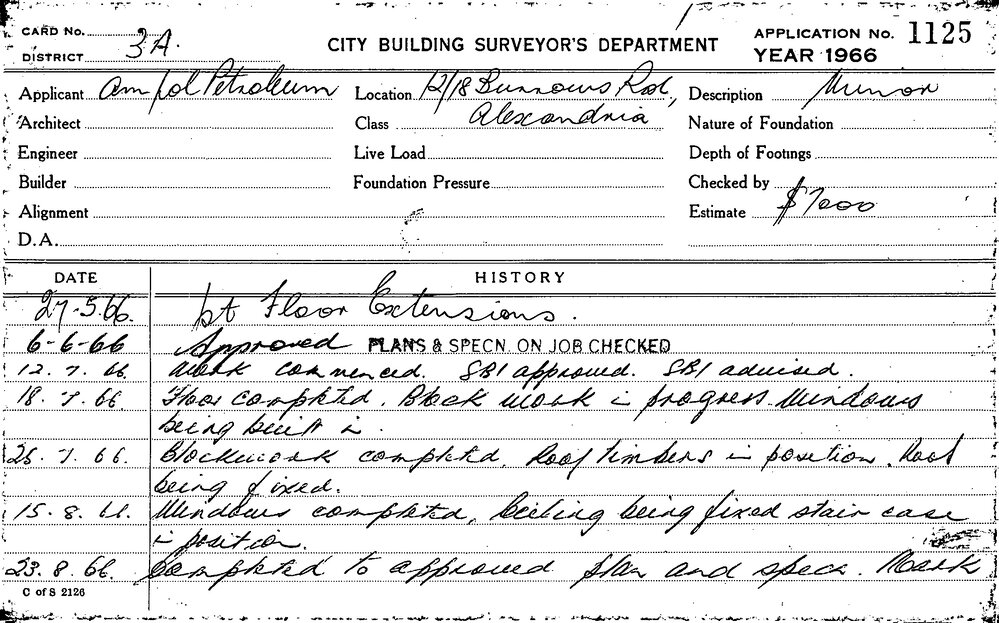 CARD No.
DISTRICT 3A.
CITY BUILDING SURVEYOR'S DEPARTMENT
APPLICATION No. 1125
YEAR 1966
Applicant Ampol Petroleum
Location 12/18 Burrows Rd,
Description Minor
Architect
Class Alexandria
Nature of Foundation
Engineer
Live Load
Depth of Footings
Builder
Foundation Pressure
Checked by
Alignment
Estimate $7000
D.A.
DATE HISTORY
27.5.66. 1st Floor Extensions.
6-6-66 Approved PLANS & SPECN. ON JOB CHECKED
12.7.66 Work commenced. SB1 approved. SB1 advised.
18.7.66. Floor completed. Block work in progress. Windows
being built in.
26.7.66. Blockwork completed, Roof timbers in position. Roof
being fixed.
15.8.66. Windows completed, Ceiling being fixed stair case
in position.
23.8.66. Completed to approved plan and specn. Mark
C of S 2126